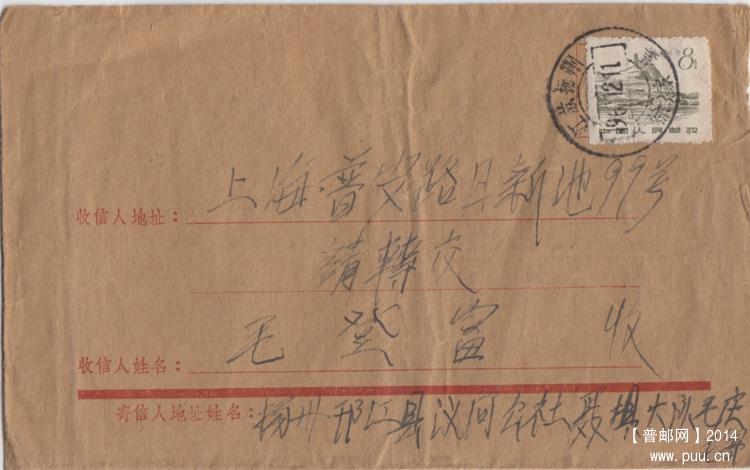 8
江苏扬州
收信人地址：上海普安路日新池99号
請轉交
收信人姓名：毛登富 收
寄信人地址姓名：扬州邗江县汊河公社聂棋大队毛庆
【普邮网】2014
www.puu.cn